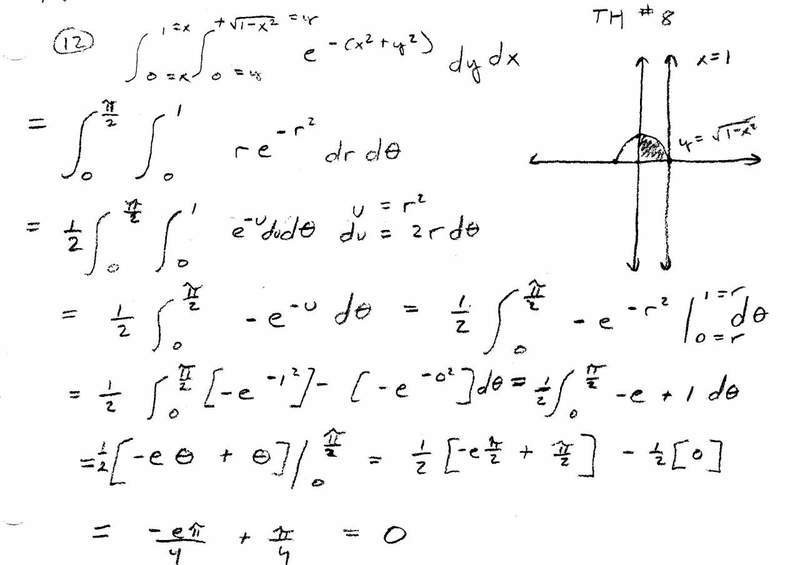 TH #8
⑫ ∫_{0=x}^{1=x} ∫_{0=y}^{+√(1-x²)=y} e^{-(x²+y²)} dy dx
x=1
y=√(1-x²)
= ∫_0^{π/2} ∫_0^1 r e^{-r²} dr dθ
= 1/2 ∫_0^{π/2} ∫_0^1 e^{-u} du dθ u = r² du = 2r dθ
= 1/2 ∫_0^{π/2} -e^{-u} dθ = 1/2 ∫_0^{π/2} -e^{-r²} |_{0=r}^{1=r} dθ
= 1/2 ∫_0^{π/2} [-e^{-1²}] - [-e^{-0²}] dθ = 1/2 ∫_0^{π/2} -e + 1 dθ
= 1/2 [-e θ + θ] |_0^{π/2} = 1/2 [-e π/2 + π/2] - 1/2 [0]
= -eπ/4 + π/4 = 0